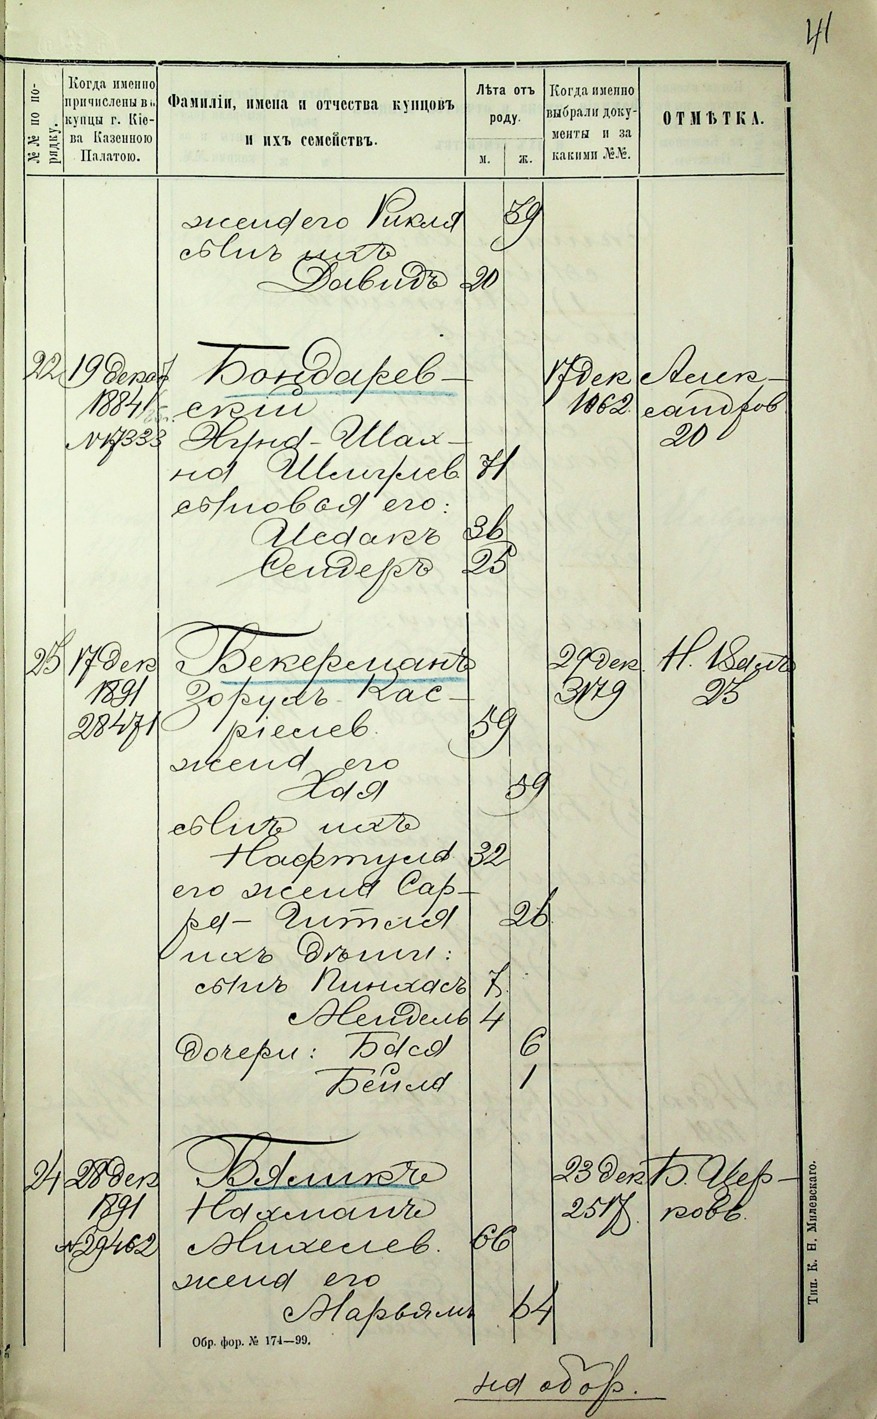 41
№№ по порядку.
Когда именно причислены въ купцы г. Кіева Казенною Палатою.
Фамиліи, имена и отчества купцовъ и ихъ семействъ.
Лѣта отъ роду.
м.
ж.
Когда именно выбрали документы и за какими №№.
ОТМѢТКА.
жена его Рикля 39
сынъ ихъ
Давидъ 20
22 19 дека 1884 №17333
Бондарев-
скій
Хуна-Шах-
на Шмулев 71
сыновья его:
Исаакъ 36
Сендеръ 25
17 дек 1062
Алек-
сандров
20
23 17 дек 1891 28471
Бекерманъ
Зорухъ Кас-
ріелев. 59
жена его
Хая 59
сынъ ихъ
Нафтула 32
его жена Сар-
ра-Гитля 26
ихъ дѣти:
сынъ Пинхасъ 7
Мендель 4
дочери: Бася 6
Бейла 1
29 дек 3179
Н. Валъ
23
24 28 дек 1891 №29462
Бяликъ
Нахманъ
Михелев. 66
жена его
Марьямъ 64
23 дек 2517
Б. Цер-
ковь.
Обр. фор. № 174—99.
Тип. К. Н. Милевскаго.
на обор.